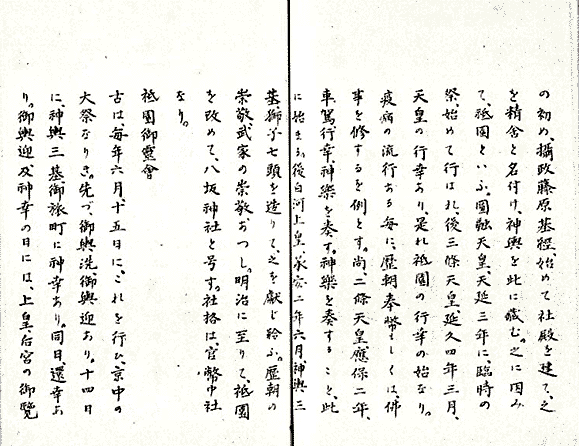 の初め、攝政藤原基經、始めて社殿を建て、之
を精舎と名付け、神輿を此に藏む。之に因み
て、祗園といふ。圓融天皇、天延三年に、臨時の
祭、始めて行はれ、後三條天皇、延久四年三月、
天皇の行幸あり、是れ祗園の行幸の始なり。
疫病の流行ある毎に、歴朝奉幣もしくは、佛
事を修するを例とす。尚、二條天皇、應保二年、
車駕行幸、神樂を奏す。神樂を奏すること、此
に始まる。後白河上皇、承安二年六月、神輿三
基、獅子七頭を造りて、之を獻じ給ふ。歴朝の
崇敬、武家の崇敬あつし。明治に至りて、祗園
を改めて、八坂神社と号す。社格は、官幣中社
なり。
祗園御靈會
古は、毎年六月十五日に、これを行ひ、京中の
大祭なりき。先づ、御輿洗、御輿迎あり。十四日
に、神輿三基、御旅町に神幸あり。同日、還幸あ
り。御輿迎及神幸の日には、上皇、后宮の御覽